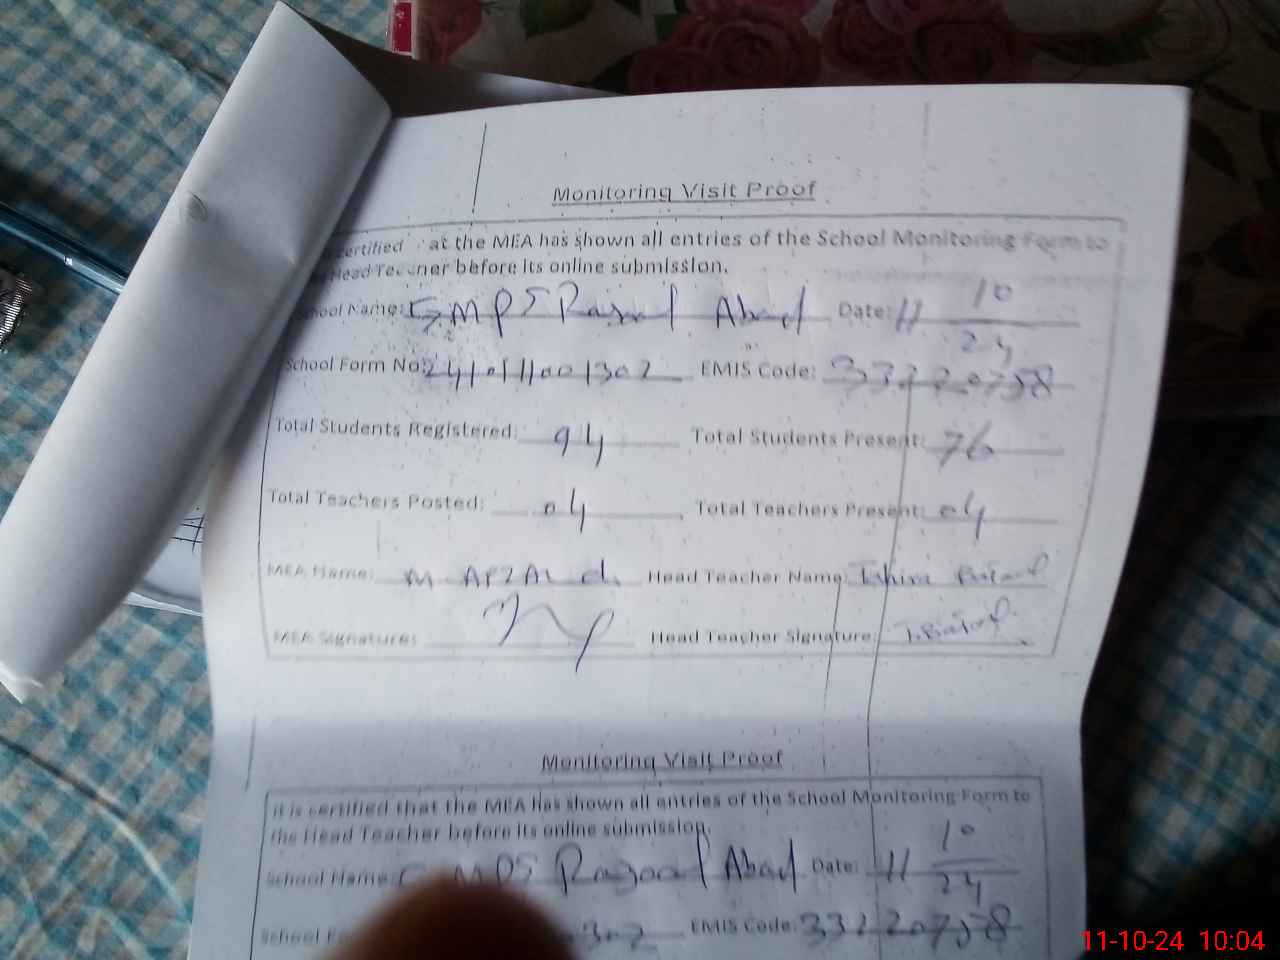 Monitoring Visit Proof
certified at the MEA has shown all entries of the School Monitoring Form to
Head Teacher before its online submission.
School Name: GMPS Rasool Abad Date: 11 10 24
School Form No: 241011001302 EMIS Code: 33220758
Total Students Registered: 94 Total Students Present: 76
Total Teachers Posted: 04 Total Teachers Present: 04
MEA Name: M AFZAL Head Teacher Name
MEA Signature: Head Teacher Signature:
Monitoring Visit Proof
It is certified that the MEA has shown all entries of the School Monitoring Form to
the Head Teacher before its online submission.
School Name: MPS Rasool Abad Date: 11 10 24
School 302 EMIS Code: 33220758
11-10-24 10:04